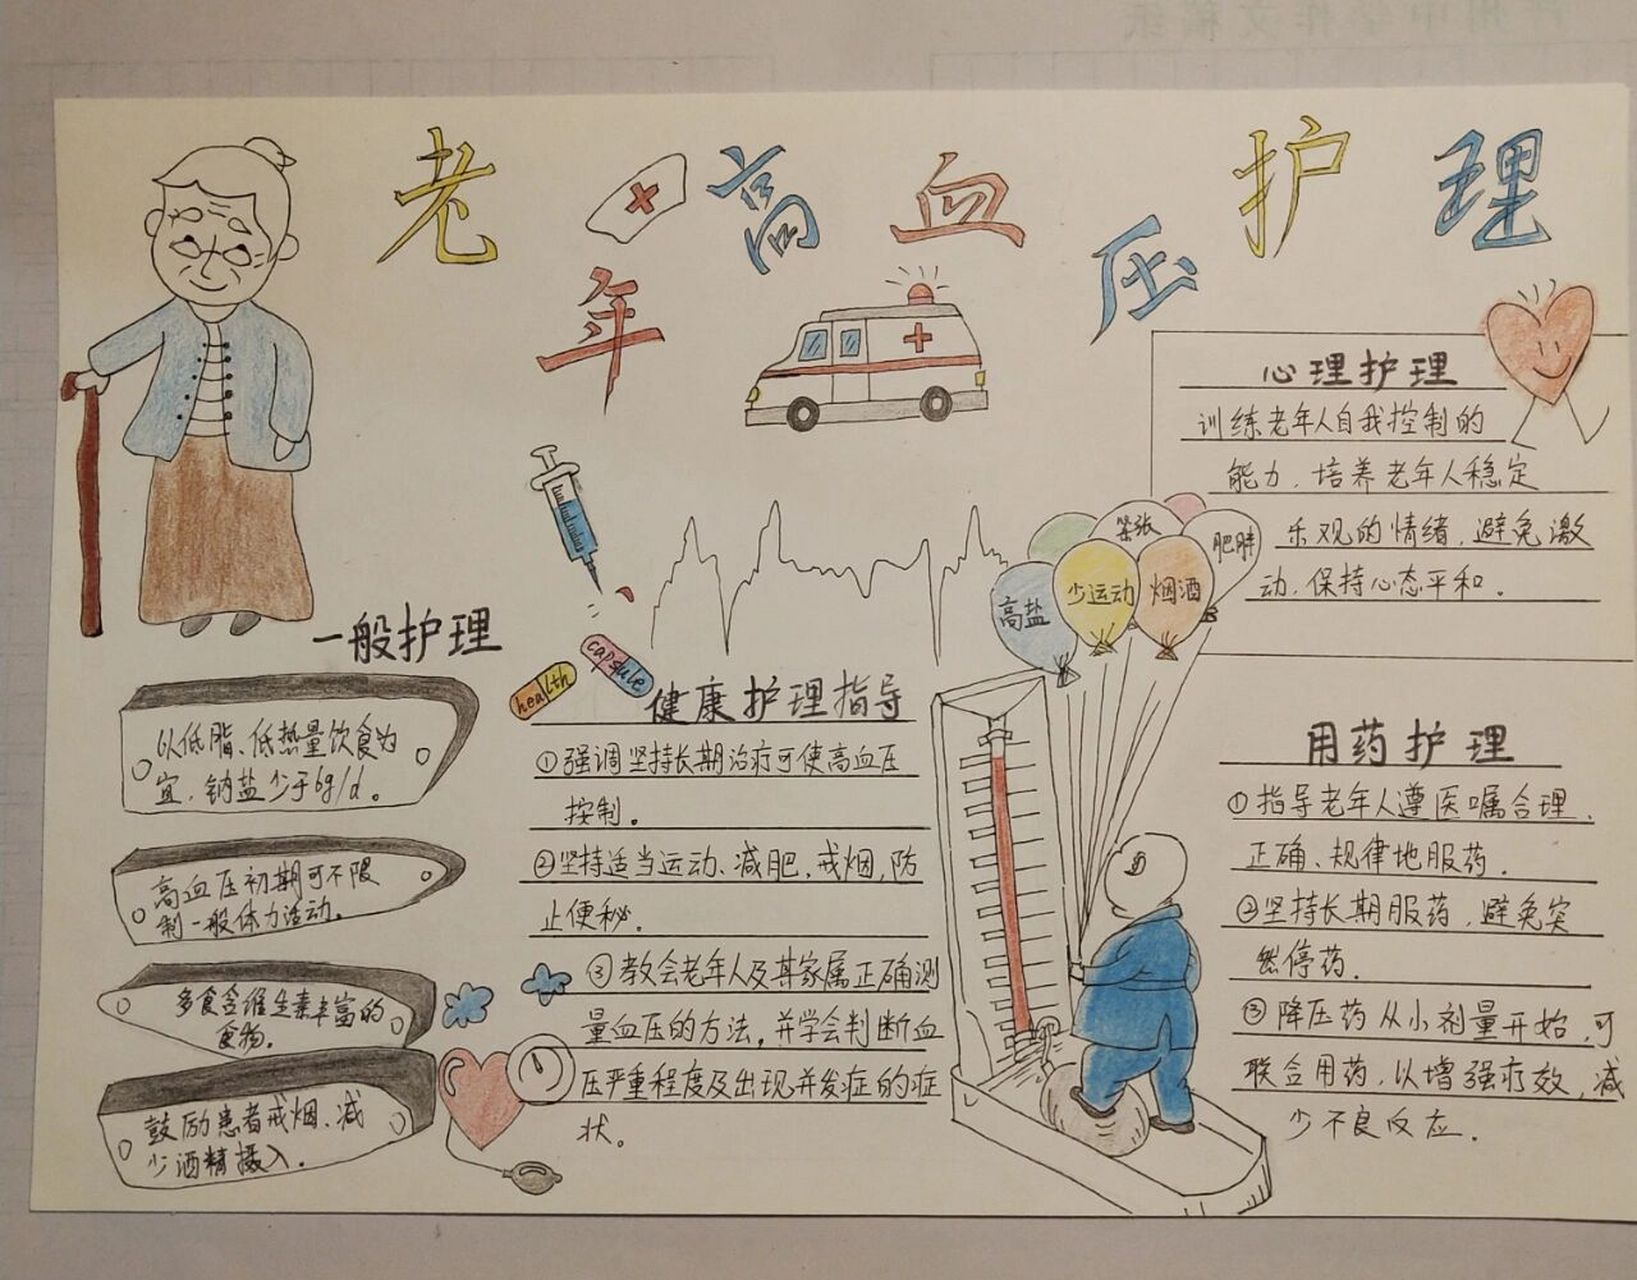 老年高血压护理
心理护理
训练老年人自我控制的
能力，培养老年人稳定
乐观的情绪，避免激
动，保持心态平和。
高盐
少运动
紧张
烟酒
肥胖
一般护理
以低脂、低热量饮食为
宜，钠盐少于6g/d。
高血压初期可不限
制一般体力活动。
多食含维生素丰富的
食物。
鼓励患者戒烟、减
少酒精摄入。
health
capsule
健康护理指导
①强调坚持长期治疗可使高血压
控制。
②坚持适当运动、减肥，戒烟，防
止便秘。
③教会老年人及其家属正确测
量血压的方法，并学会判断血
压严重程度及出现并发症的症
状。
用药护理
①指导老年人遵医嘱合理、
正确、规律地服药。
②坚持长期服药，避免突
然停药。
③降压药从小剂量开始，可
联合用药，以增强疗效，减
少不良反应。